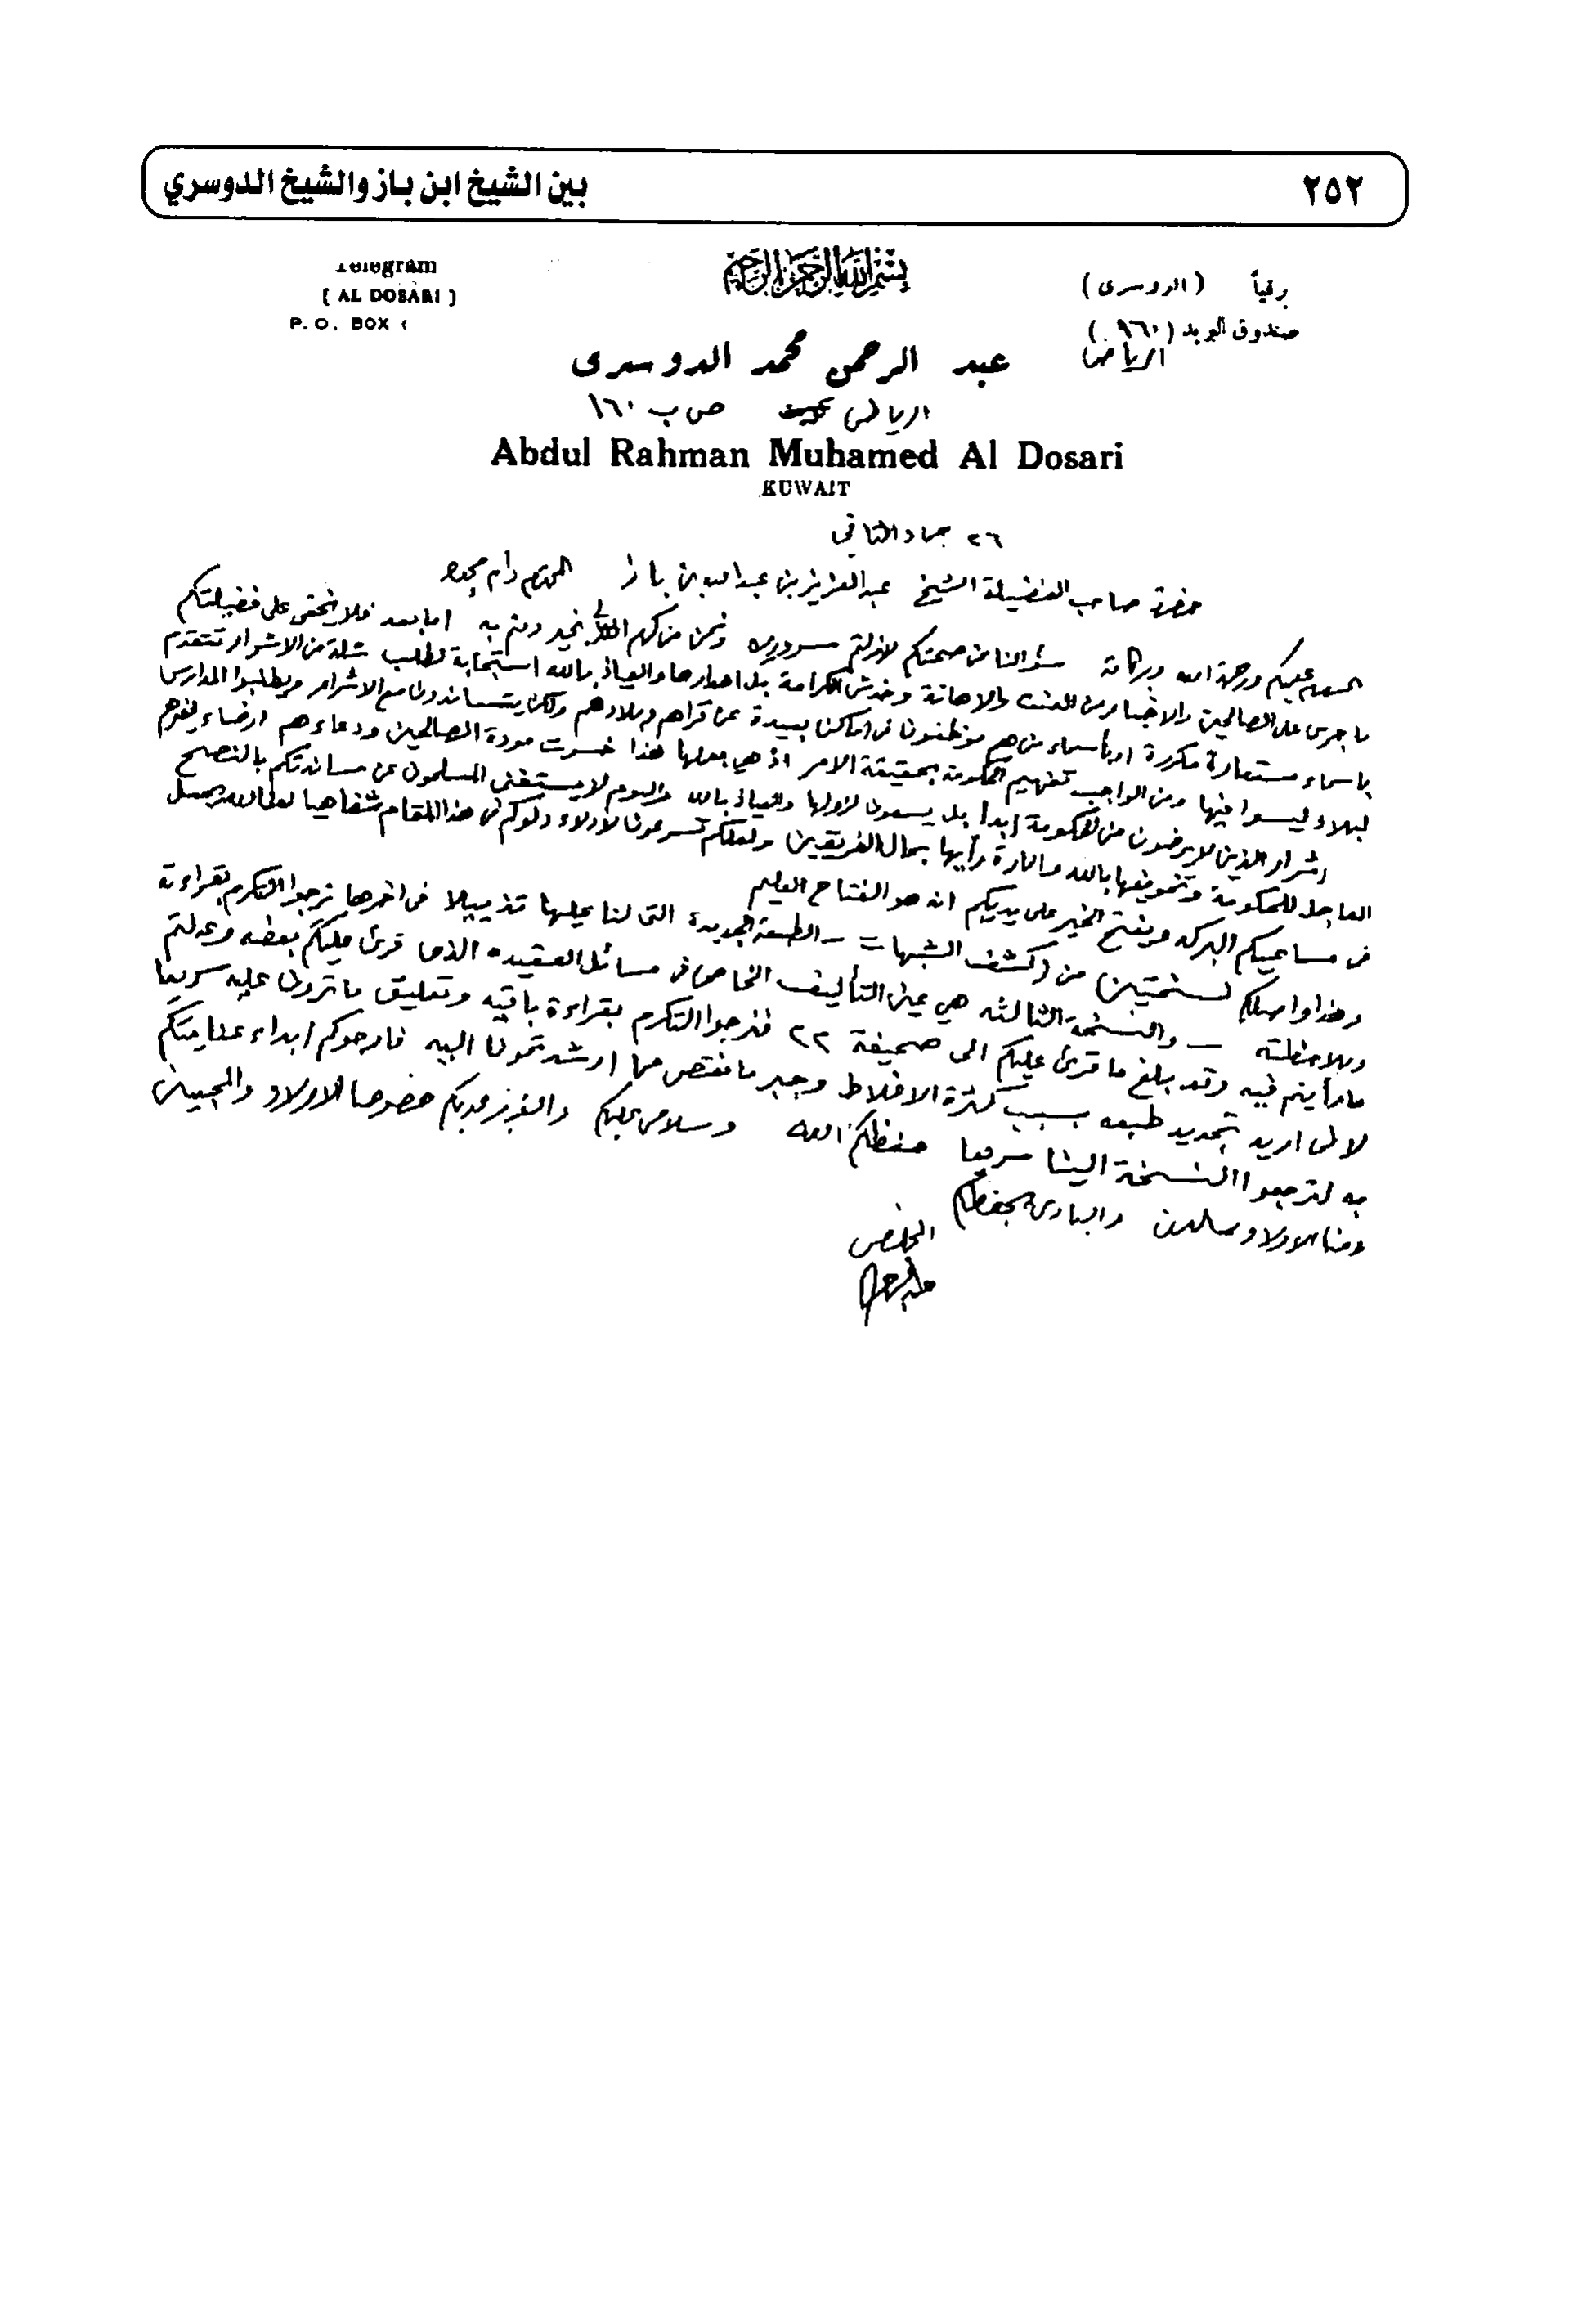 ٢٥٢
بين الشيخ ابن باز والشيخ الدوسري
Telegram
( AL DOSARI )
P. O. BOX (
بسم الله الرحمن الرحيم
برقياً ( الدوسرى )
صندوق البريد ( ٩٦٠ )
الرياض
عبد الرحمن محمد الدوسرى
الرياض كويت ص ب ١٦٠
Abdul Rahman Muhamed Al Dosari
KUWAIT
٢٦ جماد الثاني
حضرة صاحب الفضيلة الشيخ عبدالعزيز بن عبدالله بن باز المحترم دام مجده
السلام عليكم ورحمة الله وبركاته سؤالنا عن صحتكم لازلتم مسرورين ونحن من كرم الله بخير دمتم به اما بعد فلا يخفى على فضيلتكم
ما جرى على الصالحين والاخيار من العنت والاهانة وخدش الكرامة بل اهدارها والعياذ بالله استجابة لطلب شلة من الاشرار تتقدم
باسماء مستعارة مكررة او بأسماء من هم موظفون في اماكن بعيدة عن قراهم وبلادهم ولكن يتساندون مع الاشرار ويطلبوا المدارس
لبلاد ليسوا فيها ومن الواجب تفهيم الحكومة بحقيقة الامر اذ هي بعملها هذا خسرت مودة الصالحين ودعاءهم ارضاء
اشرار الذين لا يرضون من الحكومة ابدا بل يسعون لزوالها والعياذ بالله واليوم لا يستغنى المسلمون عن مساندتكم بالنصح
العاجل للحكومة وتخويفها بالله وانارة رأيها بحال الفريقين ولعلكم تسرعون لأولاء ولوكم في هذا المقام شفاهيا لعل الله يجعل
في مساعيكم البركه ويفتح الخير على يديكم انه هو الفتاح العليم
وهذا واصلكم نسختين من (كشف الشبهات = الطبعة الجديدة التى لنا عليها تذييلا في اخرها نرجوا التكرم بقراءته
وملاحظته ــ والنسخة الثالثه هي عين التأليف الخاص في مسائل العقيده الذى قرئ عليكم بعضه وعدلتم
ما رأيتم فيه وقد بلغ ما قرئ عليكم الى صحيفة ٢٢ فنرجوا التكرم بقراءة باقيه وتعليق ما ترون عليه سريعا
لانى اريد تجديد طبعه بسبب كثرة الاغلاط وجبر ما نقص مما ارشدتمونا اليه فارجوكم ابداء عنايتكم
به لترجعوا النسخة الينا سريعا حفظكم الله وسلامى عليكم والعزيز لديكم خصوصا الاولاد والمحبين
ومنا الاولاد سالمين والبارى يحفظكم
المخلص